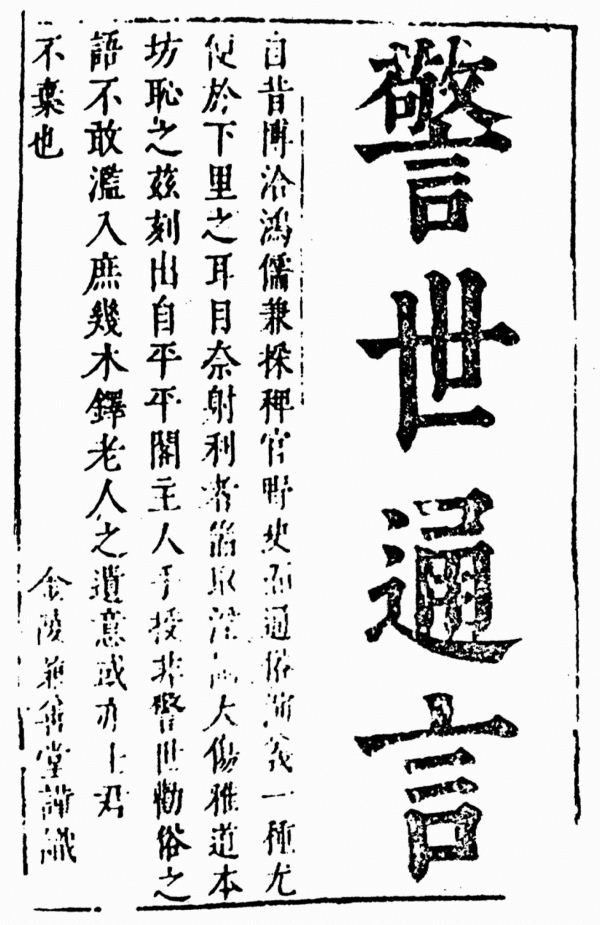 警世通言
自昔博洽鴻儒兼採稗官野史通俗演義一種尤
便於下里之耳目奈射利者取淫大傷雅道本
坊恥之茲刻出自平平閣主人手授非警世勸俗之
語不敢濫入庶幾木鐸老人之遺意或亦士君
不棄也
金陵兼善堂謹識